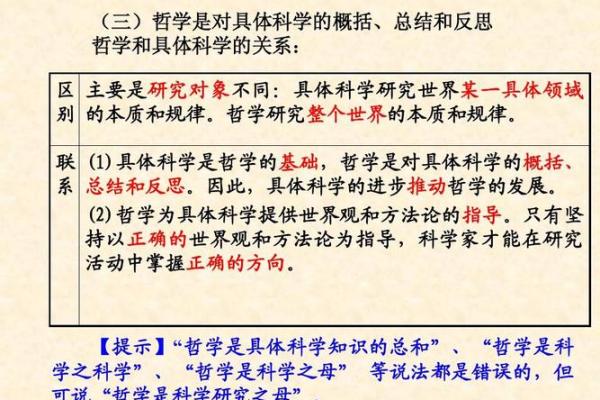 （三）哲学是对具体科学的概括、总结和反思
哲学和具体科学的关系：
区别
主要是研究对象不同：具体科学研究世界某一具体领域
的本质和规律。哲学研究整个世界的本质和规律。
联系
(1) 具体科学是哲学的基础，哲学是对具体科学的概括、
总结和反思。因此，具体科学的进步推动哲学的发展。
(2) 哲学为具体科学提供世界观和方法论的指导。只有坚
持以正确的世界观和方法论为指导，科学家才能在研究
活动中掌握正确的方向。
【提示】“哲学是具体科学知识的总和”、“哲学是科
学之科学”、“哲学是科学之母” 等说法都是错误的，但
可说“哲学是科学研究之母”．